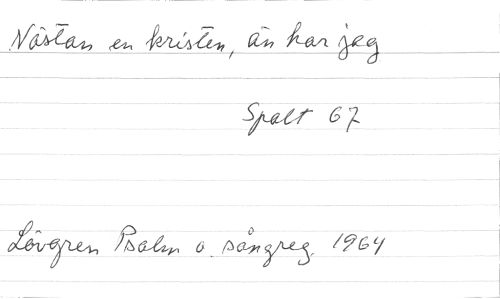 Nästan en kristen, än har jag
Spalt 67
Lövgren Psalm o. sångreg. 1964